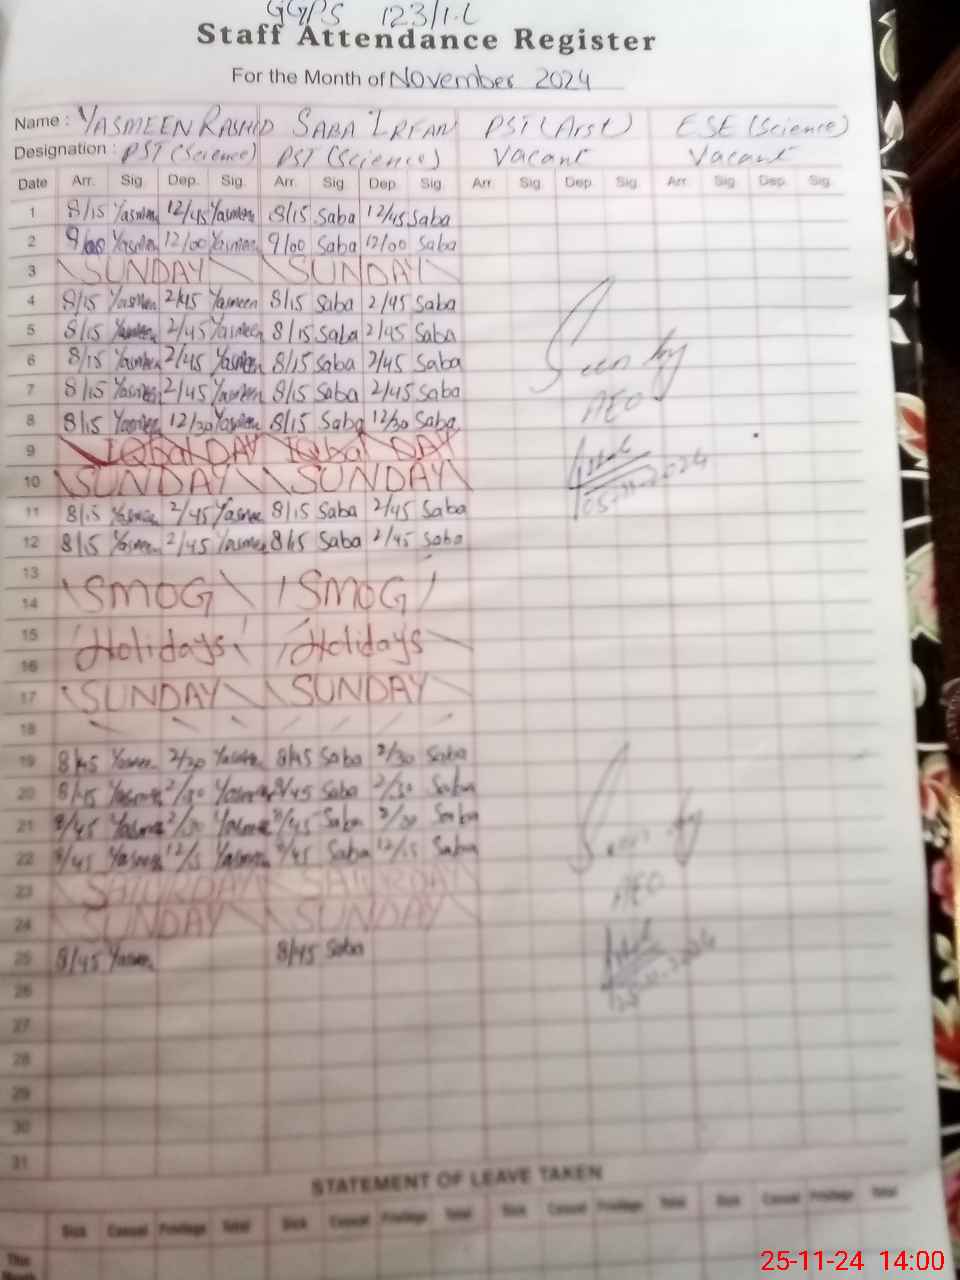 GGPS 123/1.L
Staff Attendance Register
For the Month of November 2024
Name : YASMEEN RASHID SABA IRFAN PST (Arst) ESE (Science)
Designation : PST (Science) PST (Science) Vacant Vacant
Date Arr. Sig. Dep. Sig. Arr. Sig. Dep. Sig. Arr. Sig. Dep. Sig. Arr. Sig. Dep. Sig.
1 8/15 Yasmeen 12/45 Yasmeen 8/15 Saba 12/45 Saba
2 9/00 Yasmeen 12/00 Yasmeen 9/00 Saba 12/00 Saba
3 SUNDAY SUNDAY
4 8/15 Yasmeen 2/45 Yasmeen 8/15 Saba 2/45 Saba
5 8/15 Yasmeen 2/45 Yasmeen 8/15 Saba 2/45 Saba
6 8/15 Yasmeen 2/45 Yasmeen 8/15 Saba 2/45 Saba Seen by
7 8/15 Yasmeen 2/45 Yasmeen 8/15 Saba 2/45 Saba AEO
8 8/15 Yasmeen 12/30 Yasmeen 8/15 Saba 12/30 Saba
9 IQbal DAY IQbal DAY
10 SUNDAY SUNDAY 05-11-2024
11 8/15 Yasmeen 2/45 Yasmeen 8/15 Saba 2/45 Saba
12 8/15 Yasmeen 2/45 Yasmeen 8/15 Saba 2/45 Saba
13
14 SMOG SMOG
15 Holidays Holidays
16
17 SUNDAY SUNDAY
18
19 8/45 Yasmeen 2/30 Yasmeen 8/45 Saba 2/30 Saba
20 8/45 Yasmeen 2/30 Yasmeen 8/45 Saba 2/30 Saba
21 8/45 Yasmeen 2/30 Yasmeen 8/45 Saba 2/30 Saba Seen by
22 8/45 Yasmeen 12/15 Yasmeen 8/45 Saba 12/15 Saba
23 SATURDAY SATURDAY AEO
24 SUNDAY SUNDAY
25 8/45 Yasmeen 8/45 Saba 25-11-2024
26
27
28
29
30
31
STATEMENT OF LEAVE TAKEN
Sick Casual Privilege Total Sick Casual Privilege Total Sick Casual Privilege Total Sick Casual Privilege Total
This
Month
25-11-24 14:00